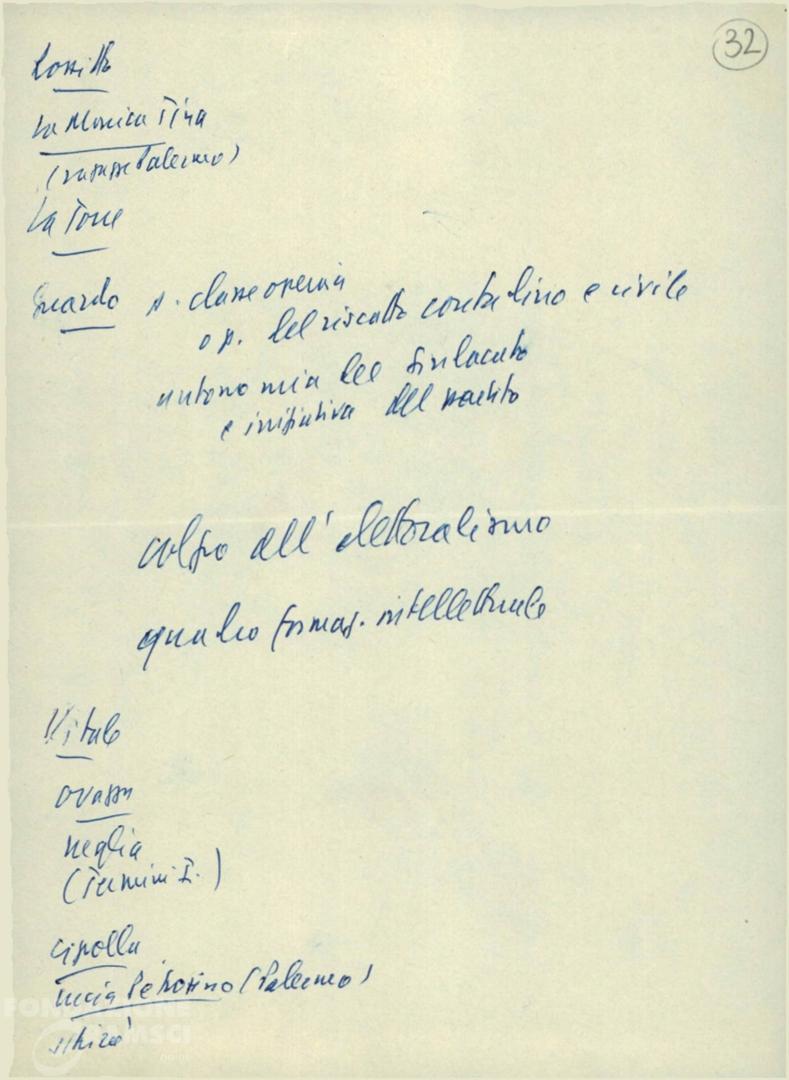 32
Rossitto
La Monica Tina
(ragazze Palermo)
La Torre
Guardo p. classe operaia
op. del riscatto contadino e civile
autonomia del sindacato
e iniziativa del partito
colpo all' elettoralismo
quadro formaz. intellettuale
Vitale
Ovazza
Neglia
(Termini I.)
Cipolla
Lucia Petrosino (Palermo)
FONDAZIONE
GRAMSCI